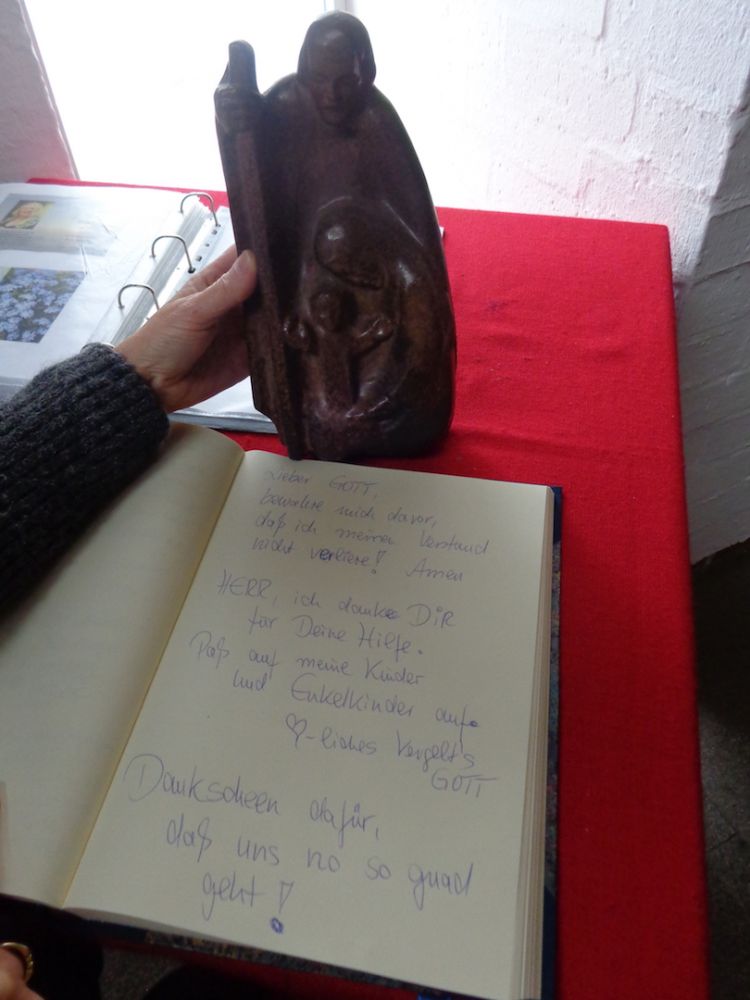 Lieber GOTT,
bewahre mich davor,
daß ich meinen Verstand
nicht verliere! Amen
HERR, ich danke DiR
für Deine Hilfe.
Paß auf meine Kinder
und Enkelkinder auf.
♡-liches Vergelt's
GOTT
Dankscheen dafür,
daß uns no so guad
geht!